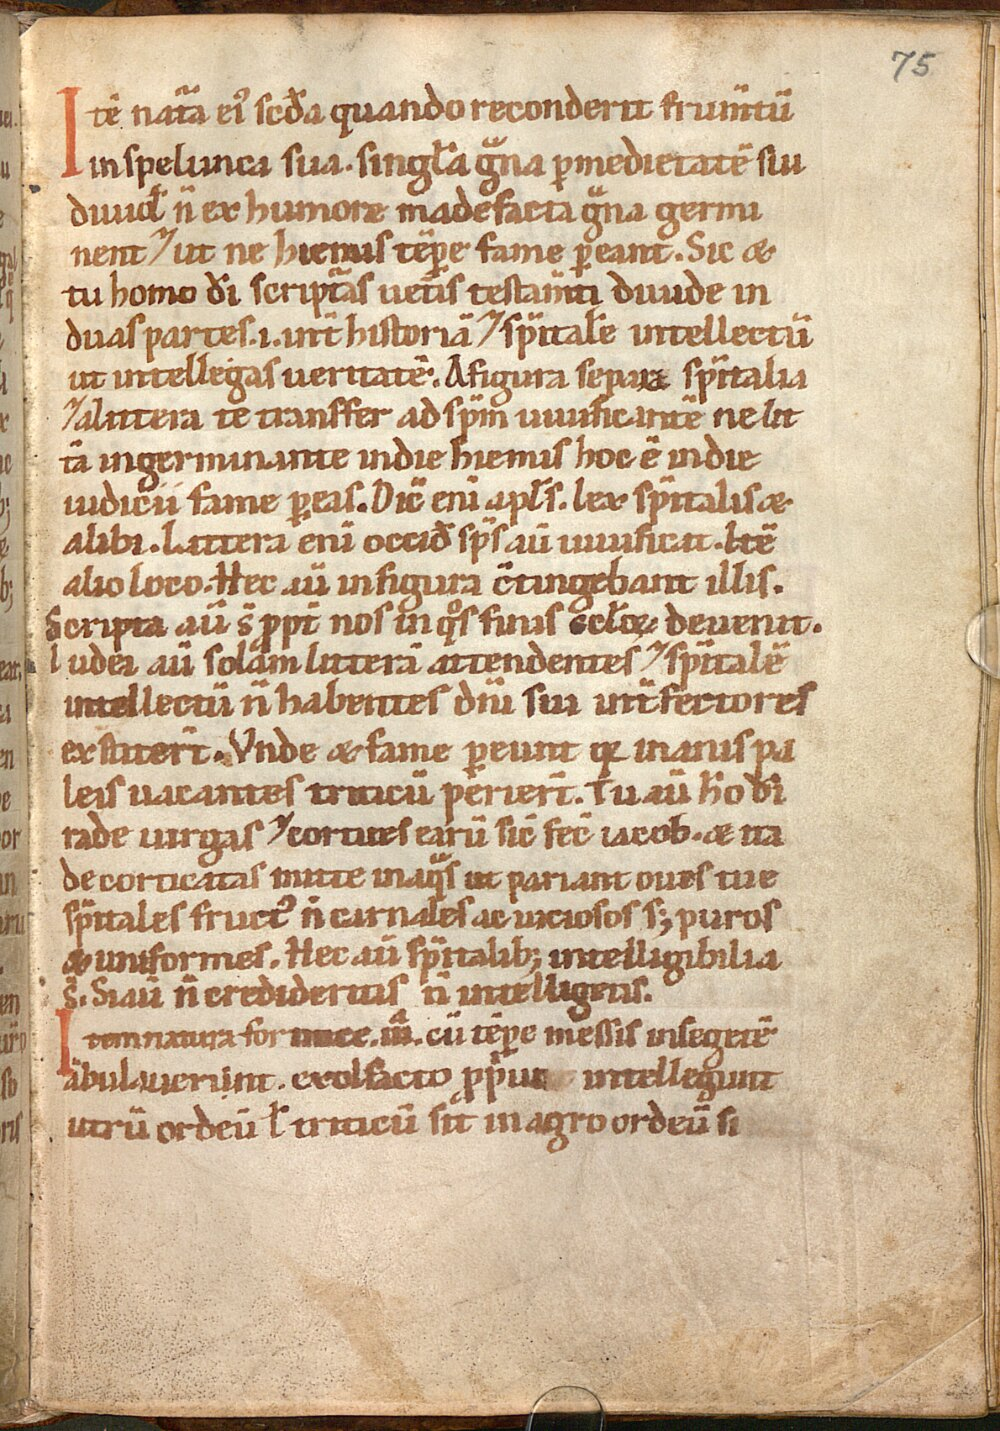 75
Itē nat̄a eiꝰ scd̄a quando reconderit frum̄tū
in spelunca sua. singl̄a gͣna ꝑ medietatē siu
diuid̄ n̄ ex humore madefacta gͣna germi
nent ⁊ ut ne hiemis tēꝑe fame ꝑeant. Sic &
tu homo d̄i scriptͣas uet̄is testām̄ti diuide in
duas partes .i. int̄ historiā ⁊ sp̄italē intellectū
ut intellegas ueritatē. A figura separa sp̄italia
⁊ a littera te transfer ad sp̄m uiuificantē ne lit
t̄a ingerminante in die hiemis hoc ē in die
iudicii fame ꝑeas. Dic̄ eni apl̄s. lex sp̄italis &
alibi. Littera eni occid̄ sp̄s aū uiuificat. Itē
alio loco. Hec aū in figura c̄tingebant illis.
Scripta aū s̄ ꝓpt̄ nos in qͦs finis scl̄oꝝ deuenit.
Iudei aū solam litterā attendentes ⁊ sp̄italē
intellectū n̄ habentes dn̄i sui int̄fectores
exstiter̄t. Vnde & fame ꝑeunt qꝛ inanis pa
leis uacantes triticū ꝑdier̄t. Tu aū ho d̄i
rade uirgas ⁊ cortices earū sic̄ fec̄ iacob. & ita
decorticatas mitte in aqͣs ut pariant oues tue
sp̄itales fructꝰ n̄ carnales ac uiciosos s; puros
& uniformes. Hec aū sp̄italib; intelligibilia
s̄. Si aū n̄ credideritis n̄ intelligetis.
Item natura formice .iiiͣ. cū tēꝑe messis in segetē
ābulauerint. ex olfacto intellegunt
utrū ordeū ł triticū sit in agro ordeū si